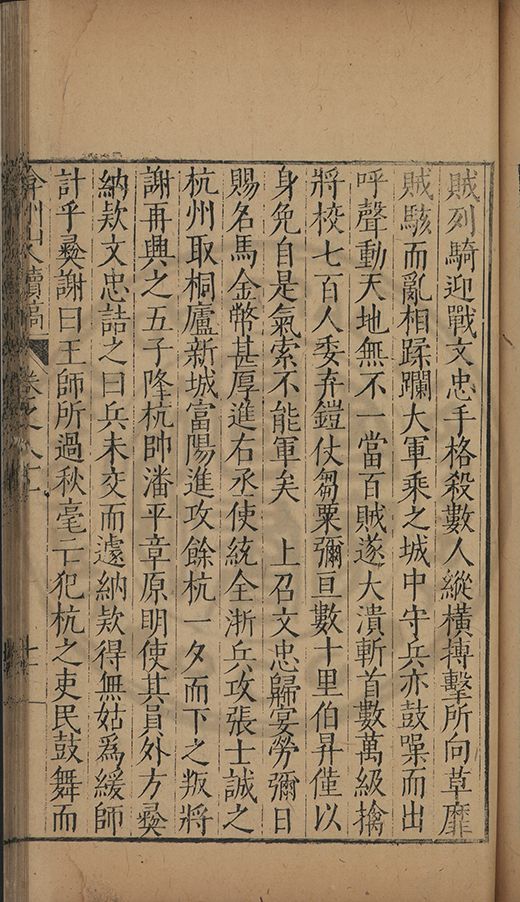 賊列騎迎戰文忠手格殺數人縱橫搏擊所向草靡
賊駭而亂相蹂躪大軍乘之城中守兵亦鼓噪而出
呼聲動天地無不一當百賊遂大潰斬首數萬級擒
將校七百人委弃鎧仗芻粟彌亘數十里伯昇僅以
身免自是氣索不能軍矣　上召文忠歸宴勞彌日
賜名馬金幣甚厚進右丞使統全浙兵攻張士誠之
杭州取桐廬新城富陽進攻餘杭一夕而下之叛將
謝再興之五子降杭帥潘平章原明使其員外方彜
納欵文忠詰之曰兵未交而遽納欵得無姑爲緩師
計乎彜謝曰王師所過秋毫亡犯杭之吏民鼓舞而
弇州山人續稿　卷之八十　十一